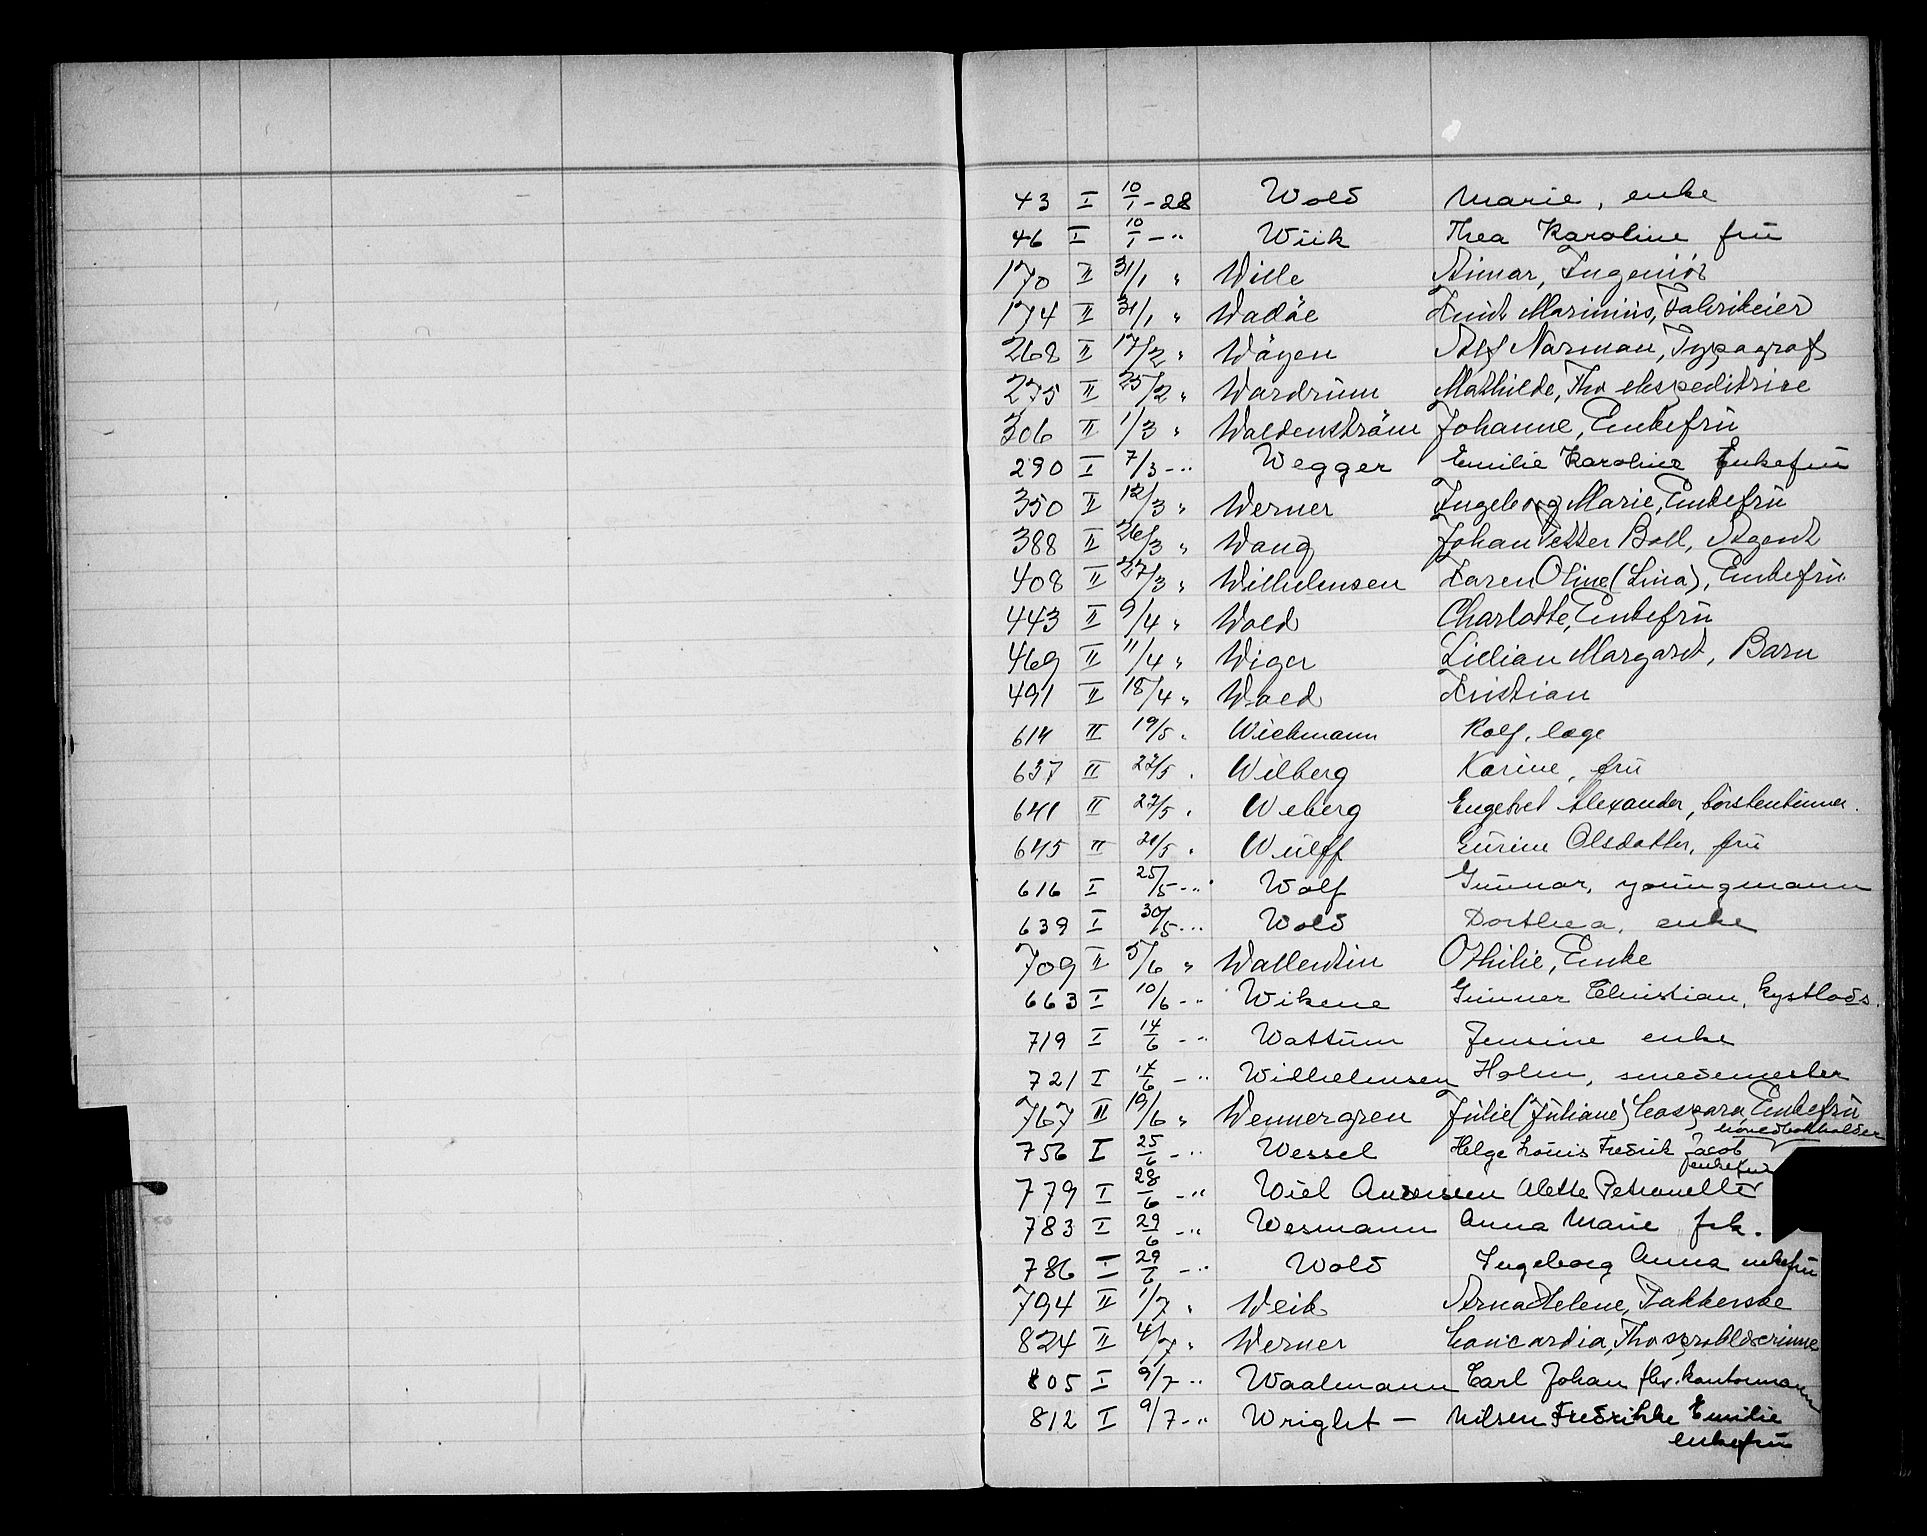 43 I 10/1 - 28 Wold Marie, enke
46 I 10/1 - " Wiik Thea Karoline frü
170 II 31/1 " Wille Aimar, Ingeniör
174 II 31/1 " Wadöe Knut Marinius, Fabrikeier
268 II 17/2 " Wöyen Alf Narman, Typograf
275 II 25/2 " Wardrum Mathilde, Fhv ekspeditrice
306 II 1/3 " Waldenström Johanne, Enkefrü
290 I 7/3 - " Wegger Emilie Karoline Enkefrü
350 II 12/3 " Werner Ingeborg Marie, Enkefrü
388 II 26/3 " Wang Johan Petter Boll, Agent
408 II 27/3 " Wilhelmsen Karen Oline (Lina), Enkefrü
443 II 9/4 " Wold Charlotte, Enkefrü
469 II 11/4 " Wiger Lillian Margaret, Barn
491 II 18/4 " Wold Kristian
614 II 19/5 " Wickmann Rolf, læge
637 II 22/5 " Wilberg Karine, frü
641 II 22/5 " Weberg Engebret Alexander, börstenbinner.
645 II 21/5 " Wülff Gurine Olsdatter, frü
616 I 25/5 - " Wolf Günnar, youngmann
639 I 30/5 - " Wold Dorthea, enke
709 II 5/6 " Wallentin Othilie, Enke
663 I 10/6 - " Wikene Günner Christian, kystlods.
719 I 14/6 - " Wattum Jensine enke
721 I 14/6 - " Wilhelmsen Holm, smedemester
767 II 19/6 " Wennergren Julie (Juliane) Caspara Enkefrü
756 I 25/6 - " Wessel Helge Louis Fredrik Jacob hovedbokholder
779 I 28/6 - " Wiel Andersen Alette Petronelle enkefrü
783 I 29/6 - " Wesmann Anna Marie frk.
786 I 29/6 - " Wold Ingeborg Anna enkefrü
794 II 1/7 " Weik Arna Helene, Pakkerske
824 II 4/7 " Werner Concordia, Fhv sypröblderinne
805 I 9/7 - " Waalmann Carl Johan fhv. kontormann
812 I 9/7 - " Wright - Nilsen Fredrikke Emilie
enkefrü